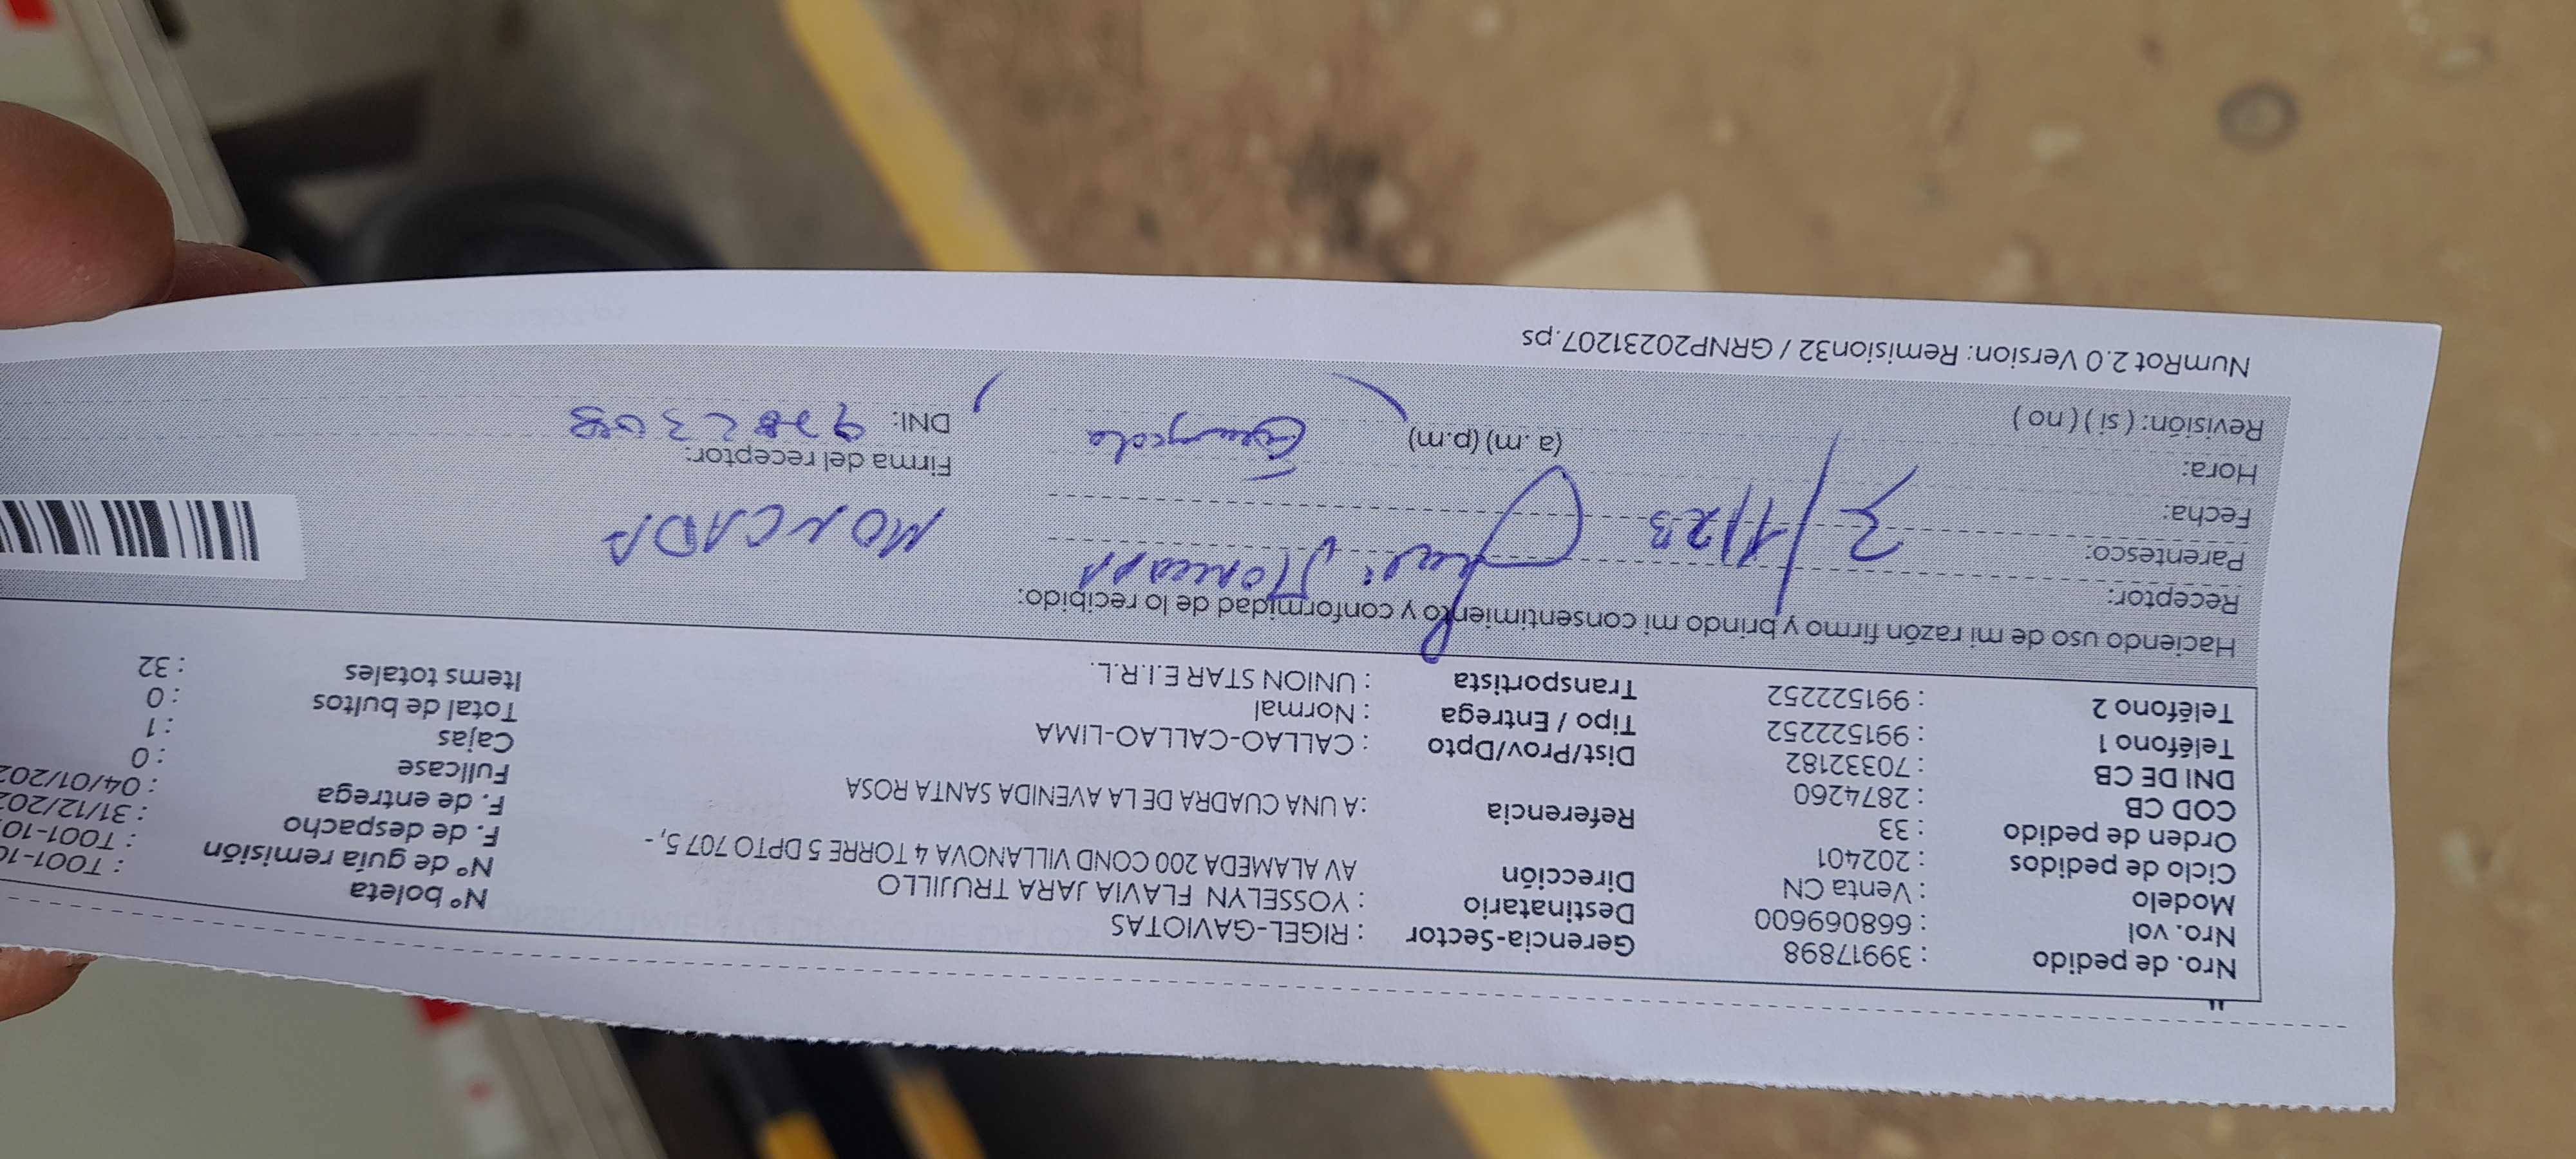 Nro. de pedido : 39917898 Gerencia-Sector : RIGEL-GAVIOTAS Nº boleta : T001-10
Nro. vol : 668069600 Destinatario : YOSSELYN FLAVIA JARA TRUJILLO Nº de guía remisión : T001-10
Modelo : Venta CN Dirección AV ALAMEDA 200 COND VILLANOVA 4 TORRE 5 DPTO 707 5, - F. de despacho : 31/12/202
Ciclo de pedidos : 202401 F. de entrega : 04/01/202
Orden de pedido : 33 Referencia : A UNA CUADRA DE LA AVENIDA SANTA ROSA Fullcase : 0
COD CB : 2874260 Cajas : 1
DNI DE CB : 70332182 Dist/Prov/Dpto : CALLAO-CALLAO-LIMA Total de bultos : 0
Teléfono 1 : 991522252 Tipo / Entrega : Normal Items totales : 32
Teléfono 2 : 991522252 Transportista : UNION STAR E.I.R.L.
Haciendo uso de mi razón firmo y brindo mi consentimiento y conformidad de lo recibido:
Receptor:
Parentesco: MONCADA
Fecha:
Hora: (a.m) (p.m) Firma del receptor:
Revisión: ( si ) ( no ) DNI:
NumRot 2.0 Version: Remision32 / GRNP20231207.ps